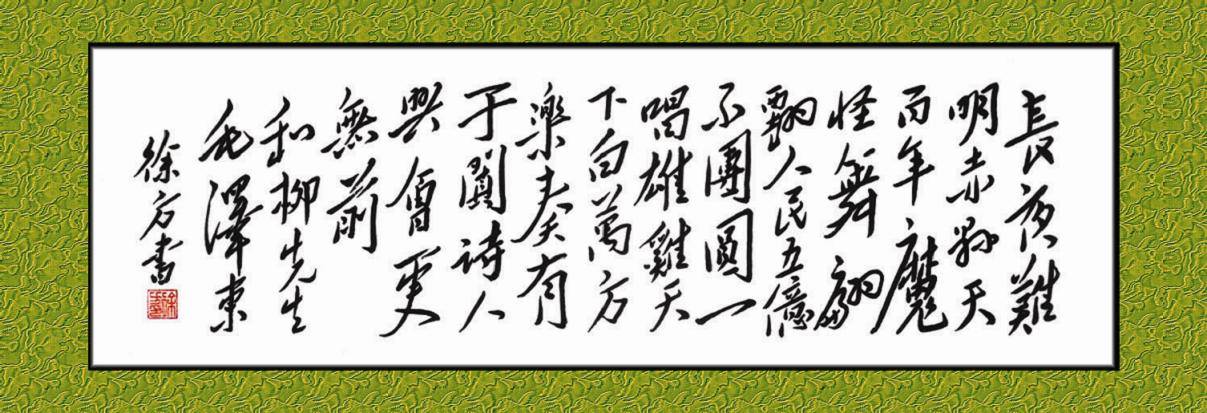 長夜難
明赤縣天
百年魔
怪舞翩
翩人民五億
不團圓一
唱雄雞天
下白萬方
樂奏有
于闐詩人
興會更
無前
和柳先生
毛澤東
徐方書